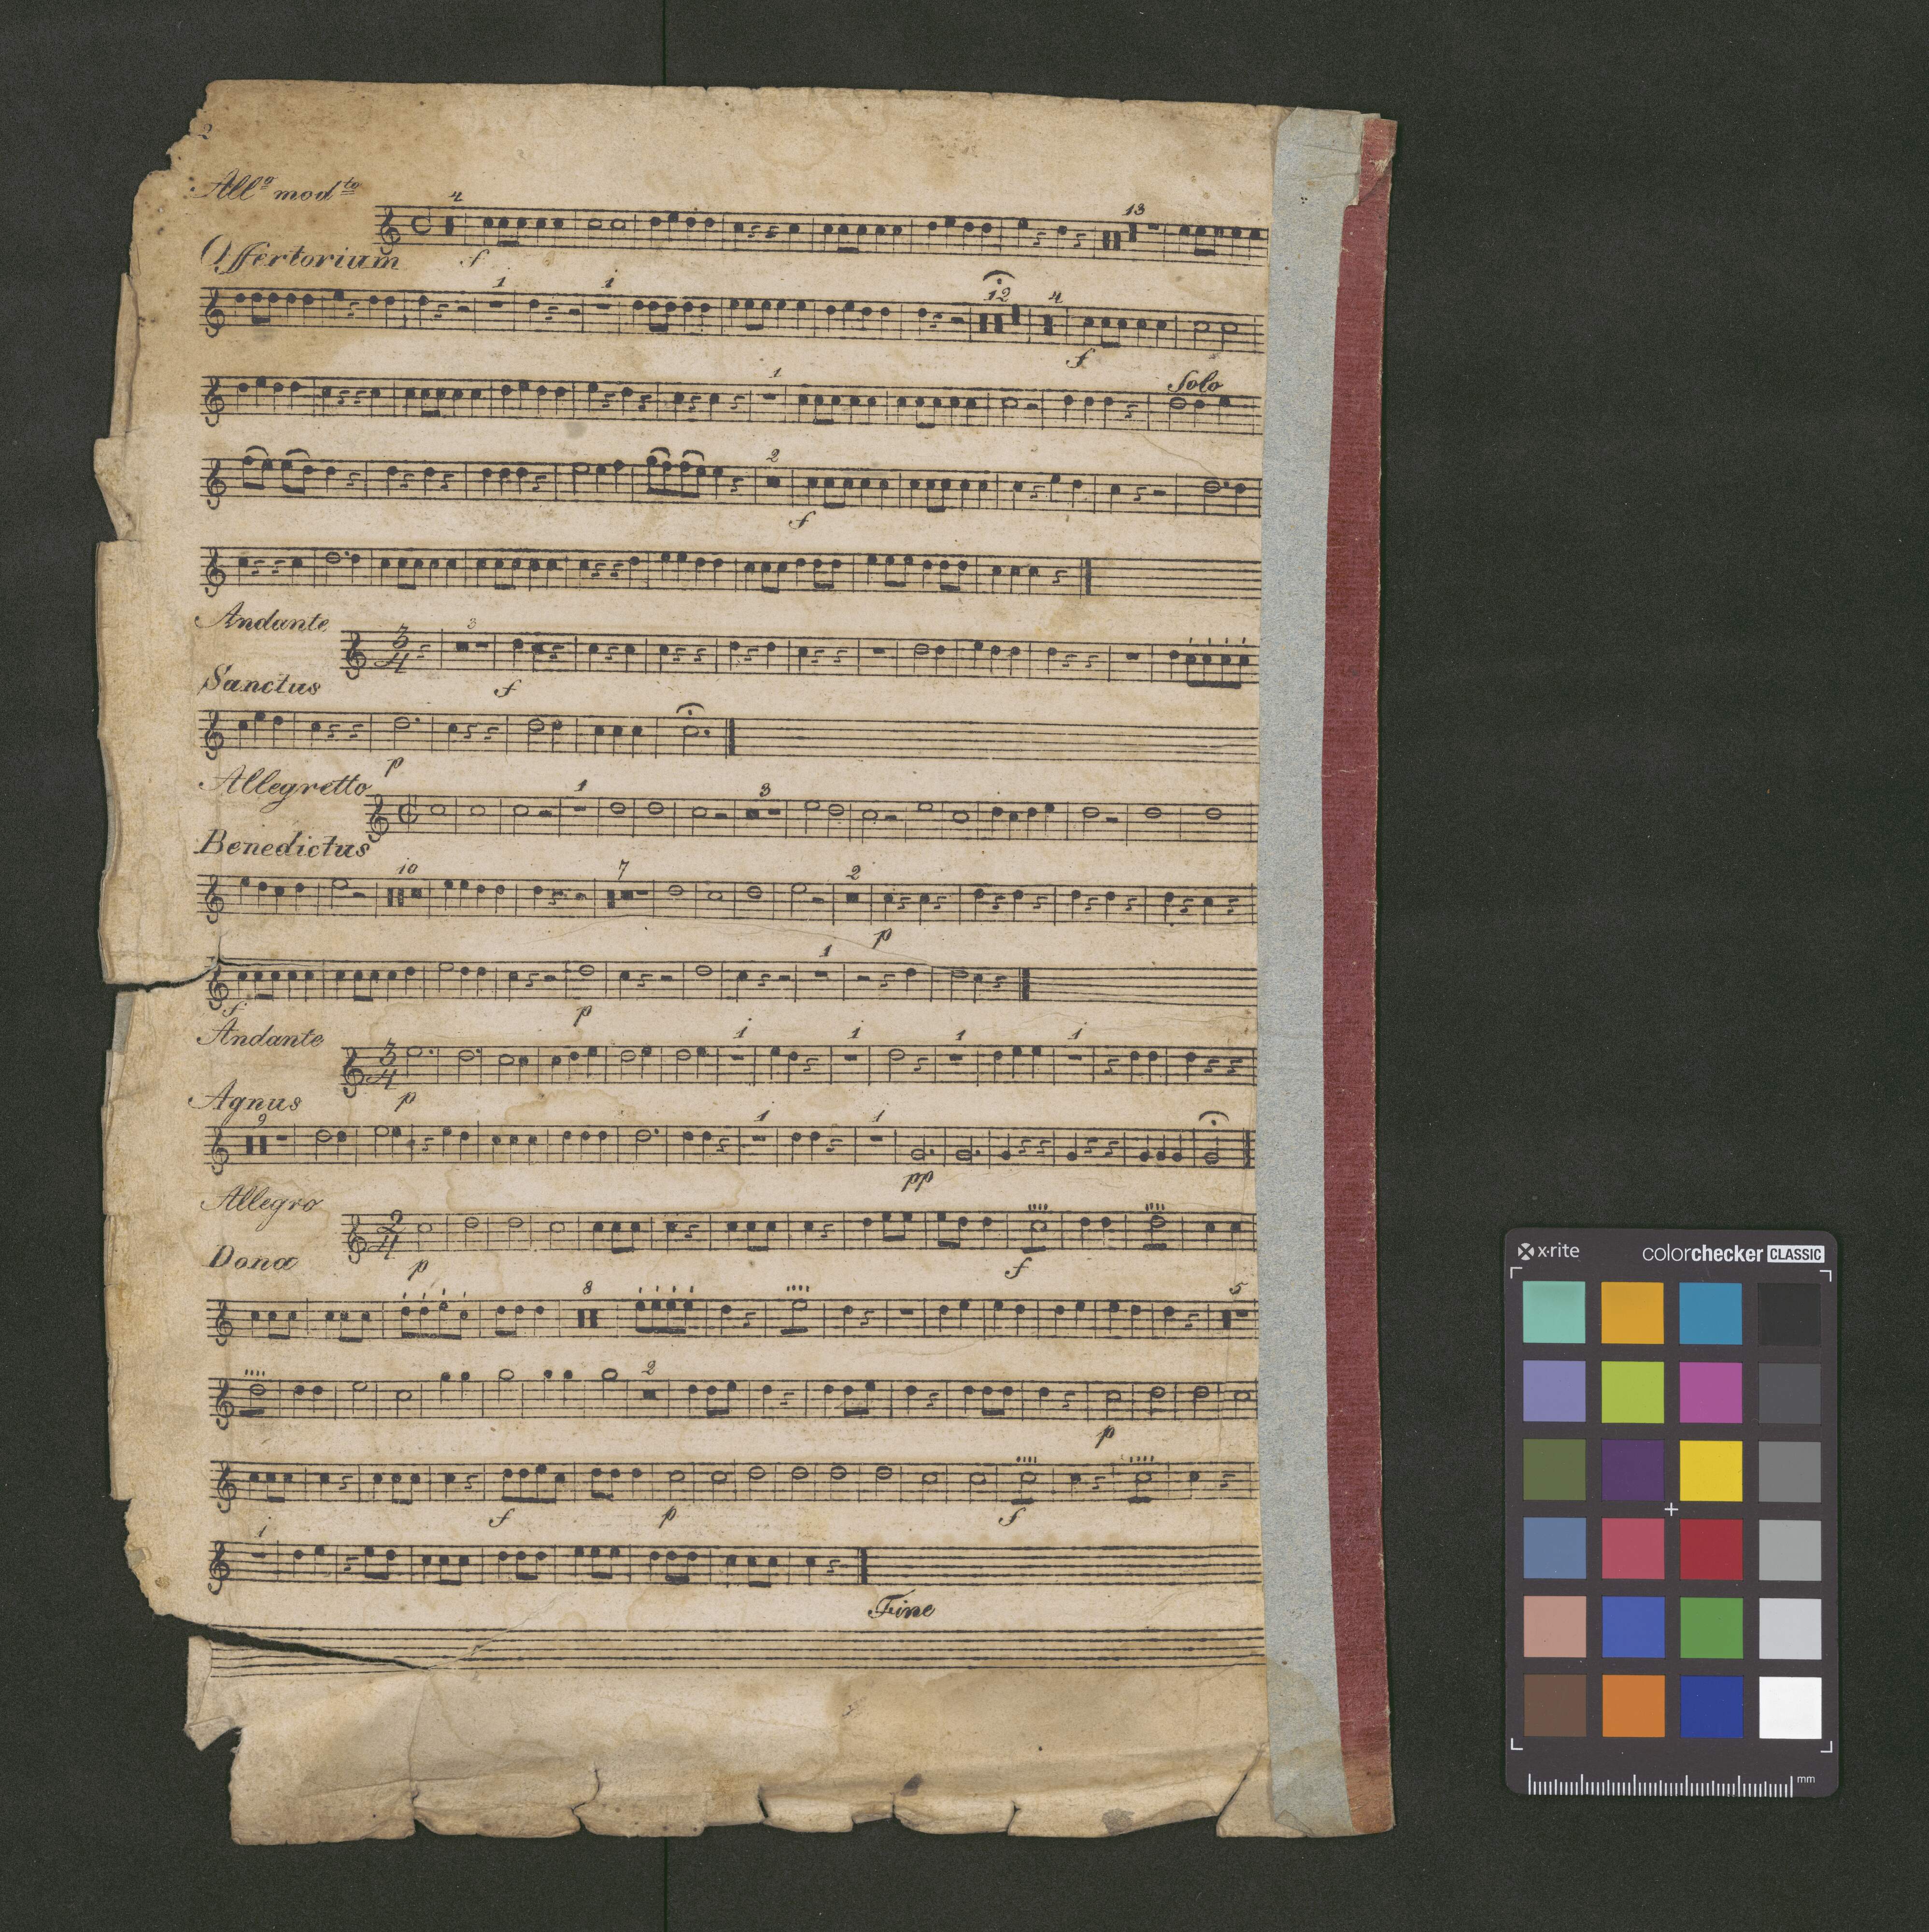 2
All⁰ mod^to
4
13
Offertorium
f
1
1
12
4
f
1
Solo
2
f
Andante
3
4
3
Sanctus
f
p
Allegretto
1
3
Benedictus
10
7
2
p
1
f
p
Andante
3
4
1
1
1
1
Agnus
p
9
1
1
pp
Allegro
2
4
Dona
p
f
8
5
2
p
f
p
f
1
Fine
x·rite
colorchecker CLASSIC
mm